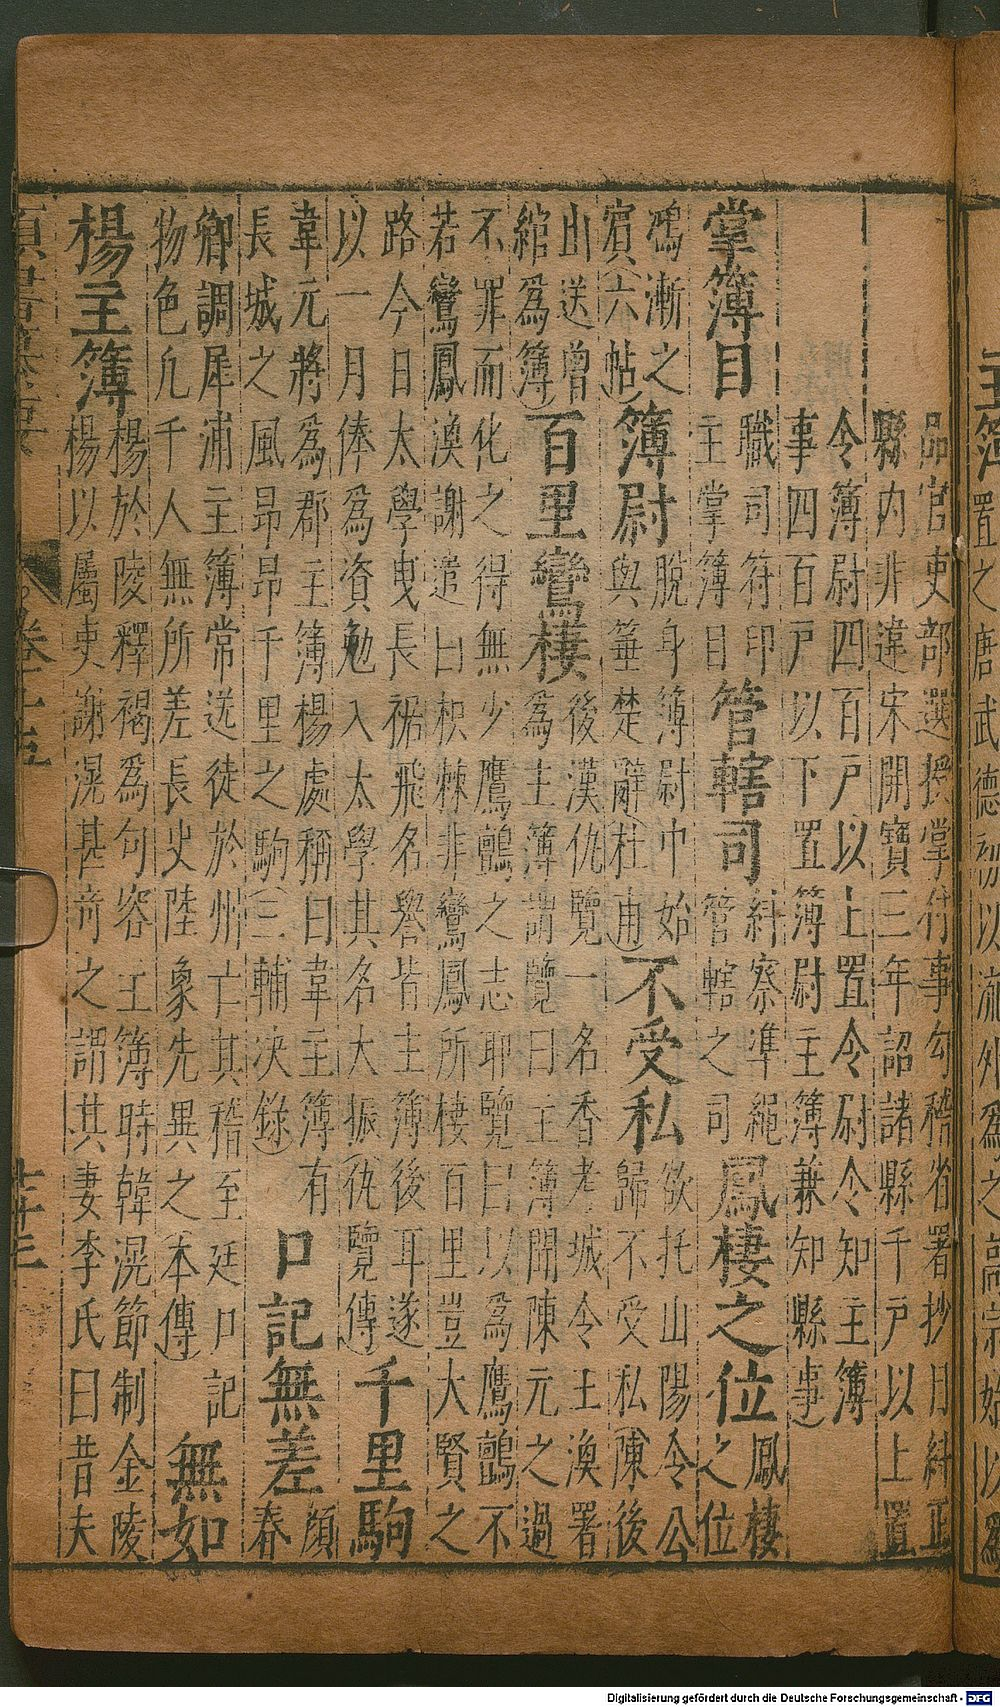 主簿置之唐武德初以流外為之高宗始以為
品官吏部選授掌付事勾稽省署抄目糾正
縣內非違宋開寶三年詔諸縣千戶以上置
令簿尉四百戶以上置令尉令知主簿
事四百戶以下置簿尉主簿兼知縣事）
掌簿目 職司符印主掌簿目 管轄司 糾察準繩管轄之司 鳳棲之位 鳳棲之位
鴻漸之賓（六帖） 簿尉 脫身簿尉中始與箠楚辭（杜甫） 不受私 欲托山陽令公歸不受私（陳後
山送曾綰為簿） 百里鸞棲 後漢仇覽一名香考城令王渙署為主簿謂覽曰主簿聞陳元之過
不罪而化之得無少鷹鸇之志耶覽曰以為鷹鸇不
若鸞鳳渙謝遣曰枳棘非鸞鳳所棲百里豈大賢之
路今日太學曳長裾飛名譽皆主簿後耳遂
以一月俸為資勉入太學其名大振（仇覽傳） 千里駒
韋元將為郡主簿楊處稱曰韋主簿有
長城之風昂昂千里之駒（三輔決錄） 口記無差 顏春
卿調犀浦主簿常送徒於州亡其稽至廷口記
物色凡千人無所差長史陸象先異之（本傳） 無如
楊主簿 楊於陵釋褐為句容主簿時韓滉節制金陵
楊以屬吏謝滉甚奇之謂其妻李氏曰昔夫
卷十五
Digitalisierung gefördert durch die Deutsche Forschungsgemeinschaft - DFG